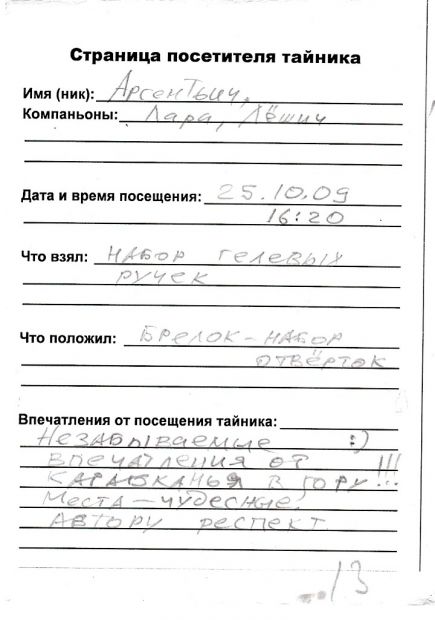 Страница посетителя тайника
Имя (ник): Арсентьич,
Компаньоны: Лара, Лёшич
Дата и время посещения: 25.10.09
16:20
Что взял: НАБОР ГЕЛЕВЫХ
РУЧЕК
Что положил: БРЕЛОК-НАБОР
ОТВЁРТОК
Впечатления от посещения тайника:
НЕЗАБЫВАЕМЫЕ :)
ВПЕЧАТЛЕНИЯ ОТ
КАРАБКАНЬЯ В ГОРУ!!!
МЕСТА — ЧУДЕСНЫЕ!
АВТОРУ РЕСПЕКТ
13